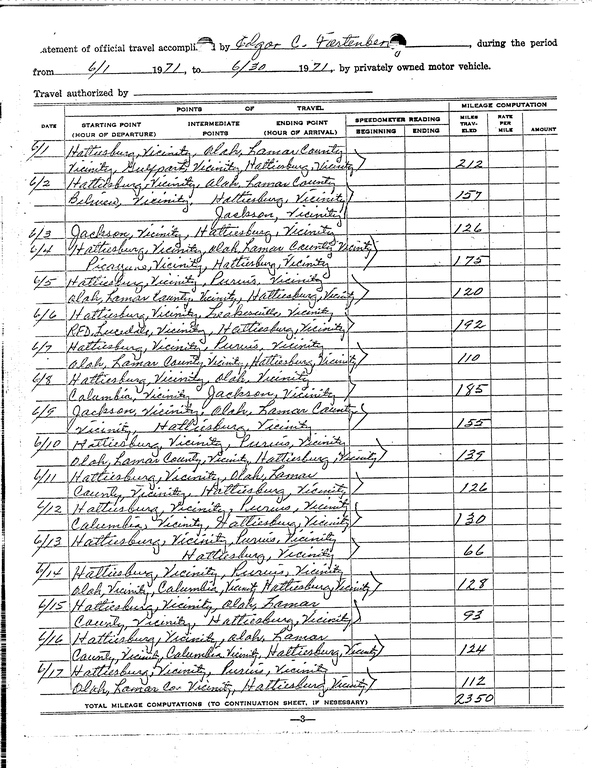 .atement of official travel accompli d by Edgar C. Fortenberg, during the period
from 6/1 1971, to 6/30 1971, by privately owned motor vehicle.
Travel authorized by
POINTS OF TRAVEL MILEAGE COMPUTATION
DATE STARTING POINT (HOUR OF DEPARTURE) INTERMEDIATE POINTS ENDING POINT (HOUR OF ARRIVAL) SPEEDOMETER READING BEGINNING ENDING MILES TRAV- ELED RATE PER MILE AMOUNT
6/1 Hattiesburg, Vicinity, Oloh, Lamar County
Vicinity, Gulfport, Vicinity, Hattiesburg, Vicinity 212
6/2 Hattiesburg, Vicinity, Oloh, Lamar County
Vicinity, Hattiesburg, Vicinity 157
Jackson, Vicinity
6/3 Jackson, Vicinity, Hattiesburg, Vicinity 126
6/4 Hattiesburg, Vicinity, Oloh, Lamar County Vicinity
Picayune, Vicinity, Hattiesburg, Vicinity 175
6/5 Hattiesburg, Vicinity, Purvis, Vicinity
Oloh, Lamar County, Vicinity, Hattiesburg, Vicinity 120
6/6 Hattiesburg, Vicinity, Leakesville, Vicinity
RFD, Lucedale, Vicinity, Hattiesburg, Vicinity 192
6/7 Hattiesburg, Vicinity, Purvis, Vicinity
Oloh, Lamar County, Vicinity, Hattiesburg, Vicinity 110
6/8 Hattiesburg, Vicinity, Oloh, Vicinity
Columbia, Vicinity Jackson, Vicinity 185
6/9 Jackson, Vicinity, Oloh, Lamar County
Vicinity, Hattiesburg, Vicinity 155
6/10 Hattiesburg, Vicinity, Purvis, Vicinity
Oloh, Lamar County, Vicinity, Hattiesburg, Vicinity 139
6/11 Hattiesburg, Vicinity, Oloh, Lamar
County, Vicinity, Hattiesburg, Vicinity 126
6/12 Hattiesburg, Vicinity, Purvis, Vicinity
Columbia, Vicinity, Hattiesburg, Vicinity 130
6/13 Hattiesburg, Vicinity, Purvis, Vicinity
Hattiesburg, Vicinity 66
6/14 Hattiesburg, Vicinity, Purvis, Vicinity
Oloh, Vicinity, Columbia, Vicinity Hattiesburg, Vicinity 128
6/15 Hattiesburg, Vicinity, Oloh, Lamar
County, Vicinity, Hattiesburg, Vicinity 93
6/16 Hattiesburg, Vicinity, Oloh, Lamar
County, Vicinity, Columbia Vicinity, Hattiesburg, Vicinity 124
6/17 Hattiesburg, Vicinity, Purvis, Vicinity
Oloh, Lamar Co. Vicinity, Hattiesburg, Vicinity 112
TOTAL MILEAGE COMPUTATIONS (TO CONTINUATION SHEET, IF NESESSARY) 2350
—3—